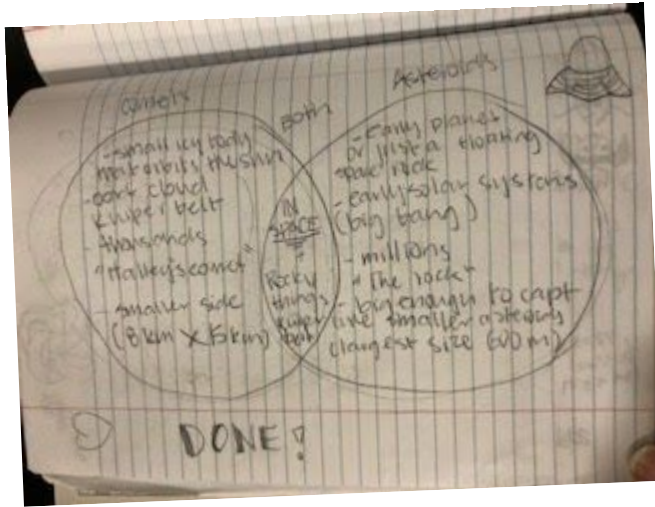 Comets
Both
Asteroids
- small icy body
that orbits the sun
- oort cloud
kuiper belt
- thousands
"Halley's comet"
- smaller side
(8 km X 15 km)
IN
SPACE
Rocky
things
kuiper
belt
- Early planet
or just a floating
space rock
- early solar systems
(big bang)
- millions
"The rock"
- big enough to capt
smaller asteroids
largest size (600 m)
DONE!